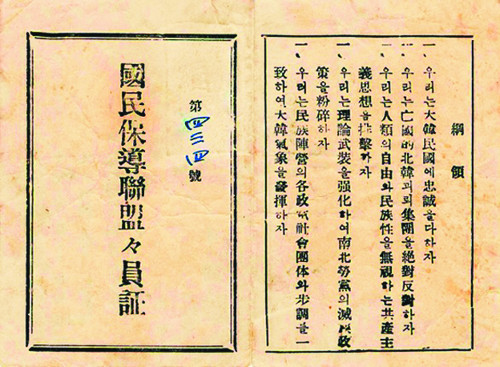 綱領
一、우리는大韓民國에忠誠을다하자
一、우리는亡國的北韓괴뢰集團을絶對反對하자
一、우리는人類의自由와民族性을無視하는共産主
義思想을排擊하자
一、우리는理論武裝을强化하여南北勞黨의滅族政
策을粉碎하자
一、우리는民族陣營의各政黨社會團体와步調를一
致하여大韓氣象을發揮하자
第四三四號
國民保導聯盟々員証